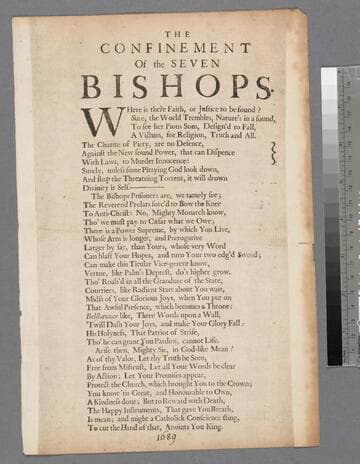 THE
CONFINEMENT
Of the SEVEN
BISHOPS.
WHere is there Faith, or Justice to be found?
Sure, the World Trembles, Nature's in a sound,
To see her Pious Sons, Design'd to Fall,
A Victim, for Religion, Truth and All.
The Charms of Piety, are no Defence,
Against the New found Power, that can Dispence
With Laws, to Murder Innocence:
Surely, unless some Pittying God look down,
And stop the Threatning Torrent, it will drown
Divinity it Self.————
The Bishops Prisoners are, we tamely see;
The Reverend Prelats forc'd to Bow the Knee
To Anti-Christ: No, Mighty Monarch know,
Tho' we must pay to Cæsar what we Owe;
There is a Power Supreme, by which You Live,
Whose Arm is longer, and Prerogative
Larger by far, than Yours, whose very Word
Can blast Your Hopes, and turn Your two edg'd Sword;
Can make this Titular Vice-gerent know,
Vertue, like Palm's Deprest, do's higher grow.
Tho' Roab'd in all the Grandure of the State,
Courtiers, like Radient Stars about You wait,
Midst of Your Glorious Joys, when You put on
That Awful Presence, which becomes a Throne:
Belshazzar like, Three Words upon a Wall,
'Twill Dash Your Joys, and make Your Glory Fall:
His Holyness, That Patriot of Strife,
Tho' he can grant You Pardon, cannot Life.
Arise then, Mighty Sir, in God-like Mean!
As of thy Valor, Let thy Truth be Seen,
Free from Mistrust, Let all Your Words be clear
By Action: Let Your Promises appear,
Protect the Church, which brought You to the Crown;
You know 'tis Great, and Honourable to Own,
A Kindness done; But to Reward with Death,
The Happy Instruments, That gave You Breath,
Is mean; and might a Catholick Conscience sting,
To cut the Hand of that, Anoints You King.
1689